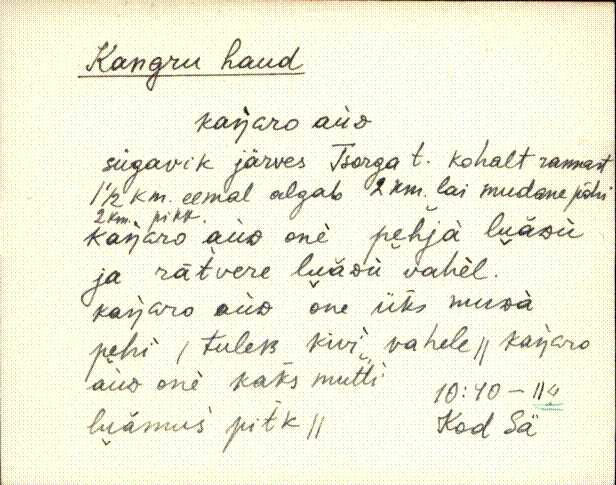 Kangru haud
kaŋ̀ᴀro aùᴅ
sügavik järves Tsorga t. kohalt rannast
1 1/2 km. eemal algab 2 km. lai mudane põhi
2 km. pikk.
kaŋ̀ᴀro aùᴅ onè pehjà luăᴅù
ja rāt̀vere luăᴅù vahèl.
kaŋ̀ᴀro aùᴅ one ük̀s muᴅà
pehi, tuleʙ kivì vahele // kaŋ̀ᴀro
aùᴅ onè kak̀s mutti
luămus pit̀k //
10:40 – 114
Kod Sä